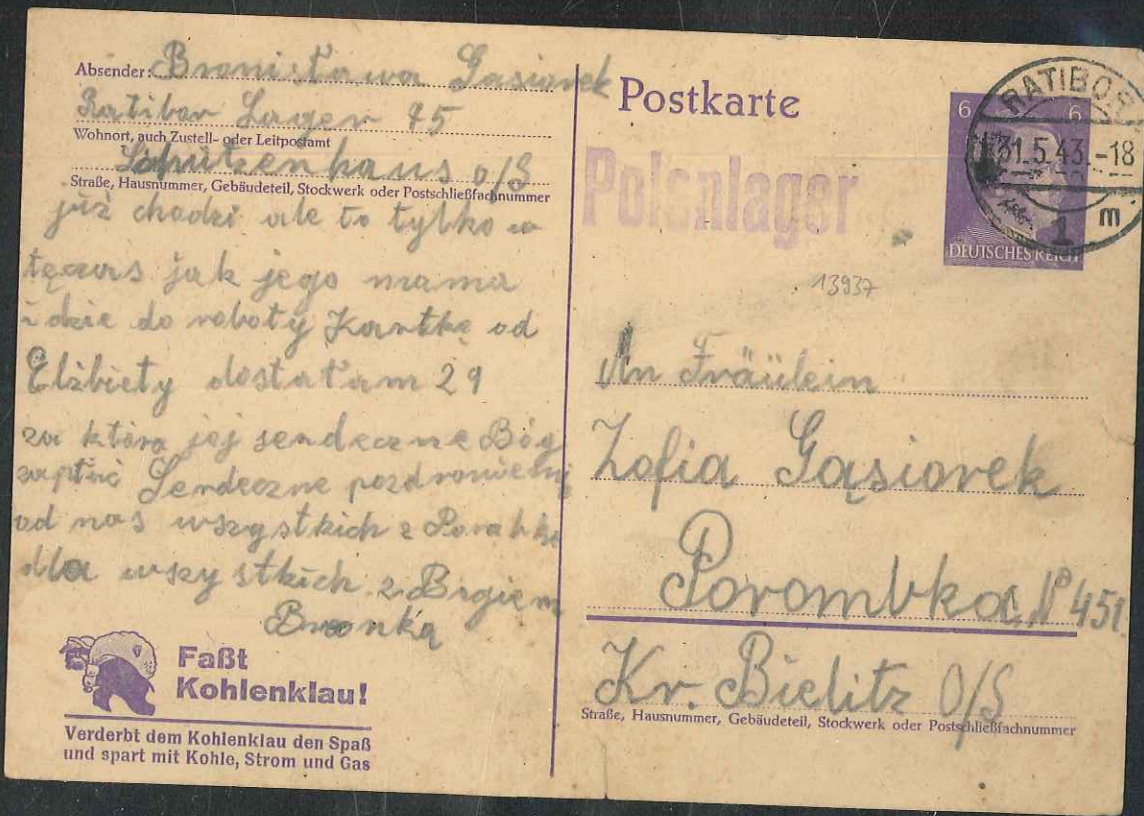 Absender: Bronisława Gąsiorek
Ratibor Lager 75
Wohnort, auch Zustell- oder Leitpostamt
Schützenhaus O/S
Straße, Hausnummer, Gebäudeteil, Stockwerk oder Postschließfachnummer
już chodzi ale to tylko w
tęczas jak jego mama
idzie do roboty Kartkę od
Elżbiety dostałam 29
za którą jej serdeczne Bóg
zapłać Serdeczne pozdrowienia
od nas wszystkich z Porąbki
dla wszystkich z Bogiem
Bronka
Faßt
Kohlenklau!
Verderbt dem Kohlenklau den Spaß
und spart mit Kohle, Strom und Gas
Postkarte
Polenlager
6 6
DEUTSCHES REICH
RATIBOR
31.5.43.-18
1 m
13937
An Fräulein
Zofia Gąsiorek
Porombka Nº 451
Kr. Bielitz O/S
Straße, Hausnummer, Gebäudeteil, Stockwerk oder Postschließfachnummer